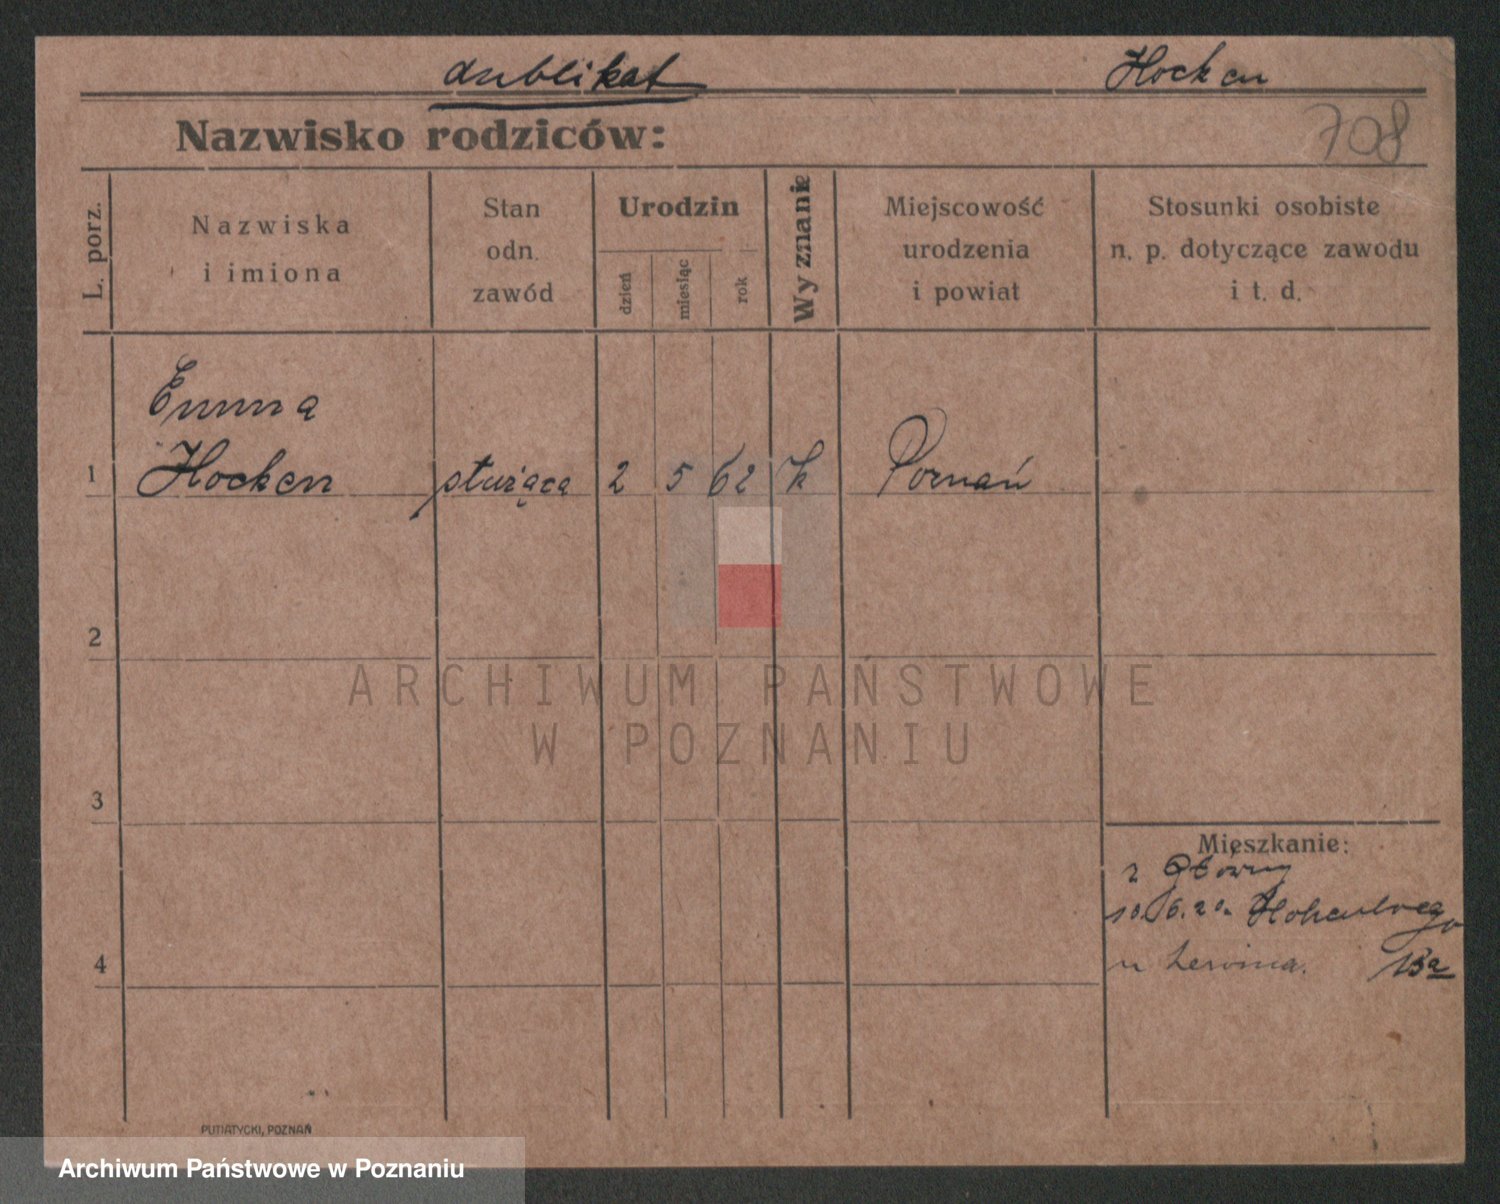 dublikat Hocken
Nazwisko rodziców:
708
L. porz.
Nazwiska
i imiona
Stan
odn.
zawód
Urodzin
dzień miesiąc rok
Wyznanie
Miejscowość
urodzenia
i powiat
Stosunki osobiste
n. p. dotyczące zawodu
i t. d.
Emma
1 Hocken służąca 2 5 62 k Poznań
2
ARCHIWUM PAŃSTWOWE
W POZNANIU
3
Mieszkanie:
z Główny
10.6.20.
4
u 13a
PUTIATYCKI, POZNAŃ
Archiwum Państwowe w Poznaniu